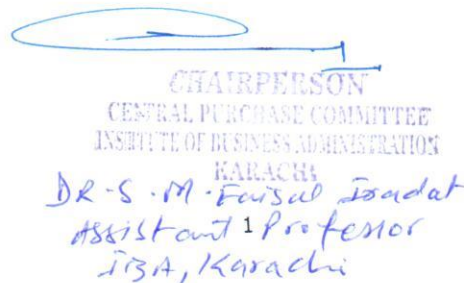 CHAIRPERSON
CENTRAL PURCHASE COMMITTEE
INSTITUTE OF BUSINESS ADMINISTRATION
KARACHI
DR-S-M-Faisal Iradat
Assistant Professor
1
IBA, Karachi